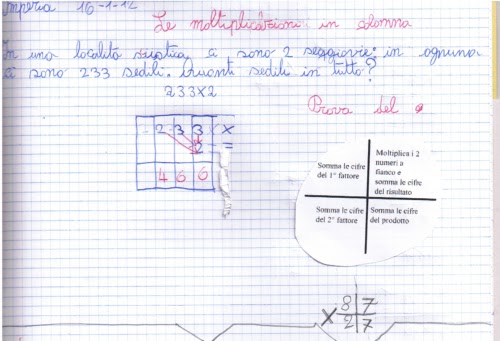 Imperia 16-1-12
Le moltiplicazioni in colonna
In una località sciistica ci sono 2 seggiovie: in ognuna
ci sono 233 sedili. Quanti sedili in tutto?
233x2
Prova del 9
2 3 3 x
2 =
4 6 6
Somma le cifre
del 1° fattore
Moltiplica i 2
numeri a
fianco e
somma le cifre
del risultato
Somma le cifre
del 2° fattore
Somma le cifre
del prodotto
8 7
x 2 7